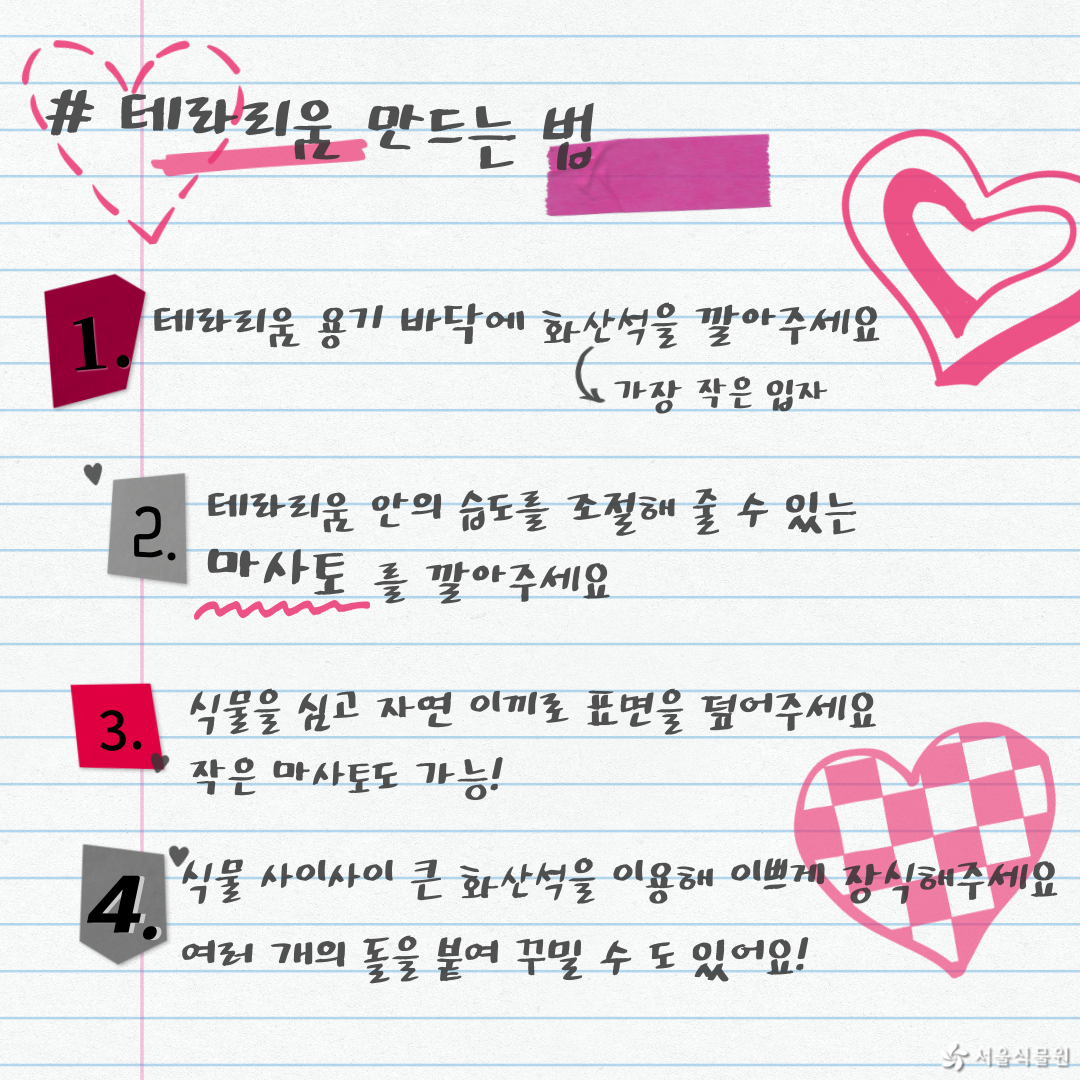 # 테라리움 만드는 법
1. 테라리움 용기 바닥에 화산석을 깔아주세요
가장 작은 입자
2. 테라리움 안의 습도를 조절해 줄 수 있는
마사토 를 깔아주세요
3. 식물을 심고 자연 이끼로 표면을 덮어주세요
작은 마사토도 가능!
4. 식물 사이사이 큰 화산석을 이용해 이쁘게 장식해주세요
여러 개의 돌을 붙여 꾸밀 수 도 있어요!
서울식물원